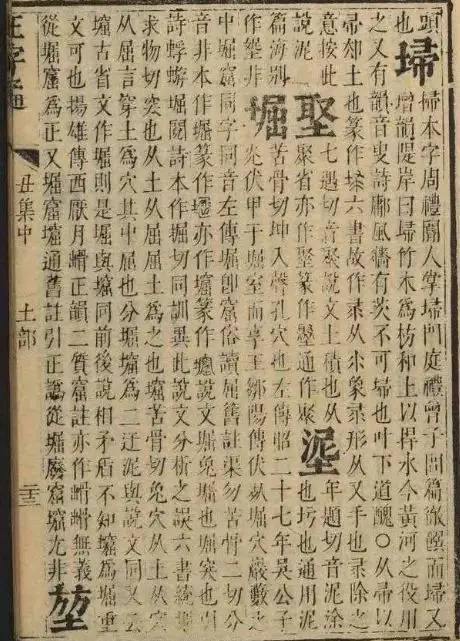 頭埽掃本字周禮閽人掌埽門庭禮曾子問篇徹醮而埽又
也增韻隄岸曰埽竹木爲枋種上以捍水今黃河之役用
之又有韻音叟詩鄘風牆有茨不可埽也叶下道醜○从帚以
帚郄土也篆作六書故作从尗象帚形从又手也帚除之
意按此堅七遇切音聚說文土積也从埿年題切音泥塗
說泥聚省亦作聚篆作通作聚也圬也通用泥
篇海堀苦骨切坤入聲孔穴也左傳昭二十七年吳公子
作非光伏甲于堀室而享王鄒陽傳伏堀穴巖藪之
中堀窟同字同音左傳堀卽窟俗讀屈舊註渠勿苦骨二切分
音非本作堀篆作亦作篆作說文堀兔堀也堀突也引
詩蜉蝣堀閱詩本作堀切同訓異此說文分析之誤六書統
求物切突也从土从屈土爲之也苦骨切兔穴从土从
从屈言穿土爲穴其中屈也分堀爲二迂泥與說文同又云
古省文作堀則是堀與同前後說相矛盾不知爲堀重
文可也揚雄傳西厭月正韻二質窟註亦作無義
從堀窟爲正又堀窟通舊註引正譌從堀廢窟尤非堃
正字通 丑集中 土部 二十三